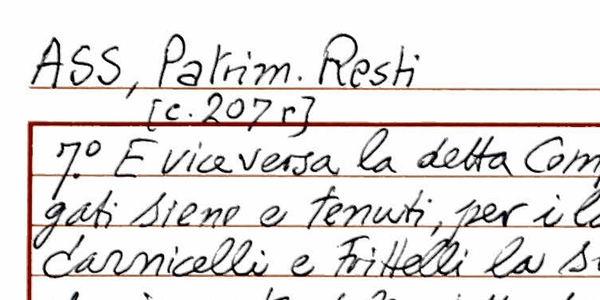 ASS, Patrim. Resti
[c. 207 r]
7.º E viceversa la detta Com
gati sieno e tenuti, per i lo
Carnicelli e Frittelli la s